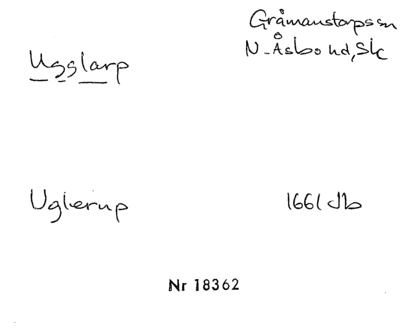 Gråmanstorps sn
Ugglarp N. Åsbo hd, Sk
Uglerup 1661 Jb
Nr 18362